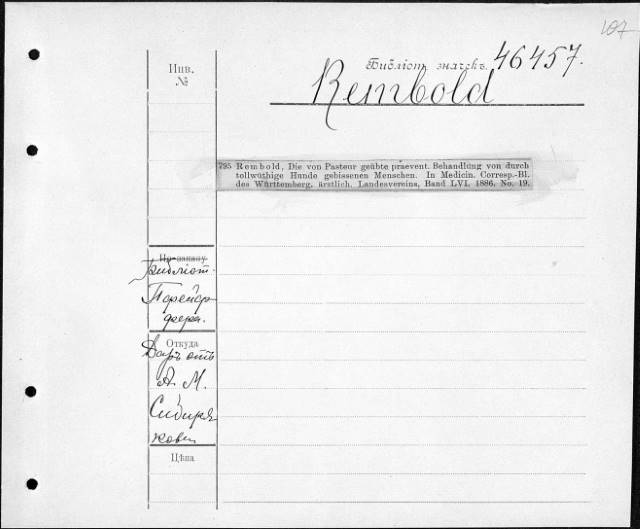 107
Инв.
№
Библіот. значекъ.
46457.
Rembold
795 Rembold, Die von Pasteur geübte præevent. Behandlung von durch
tollwüthige Hunde gebissenen Menschen. In Medicin. Corresp.-Bl.
des Württemberg. ärstlich. Landesvereins, Band LVI, 1886, No. 19.
По заказу
Библіот.
Порейор
фера.
Откуда
Даръ отъ
А. М.
Сибиря
кова
Цѣна